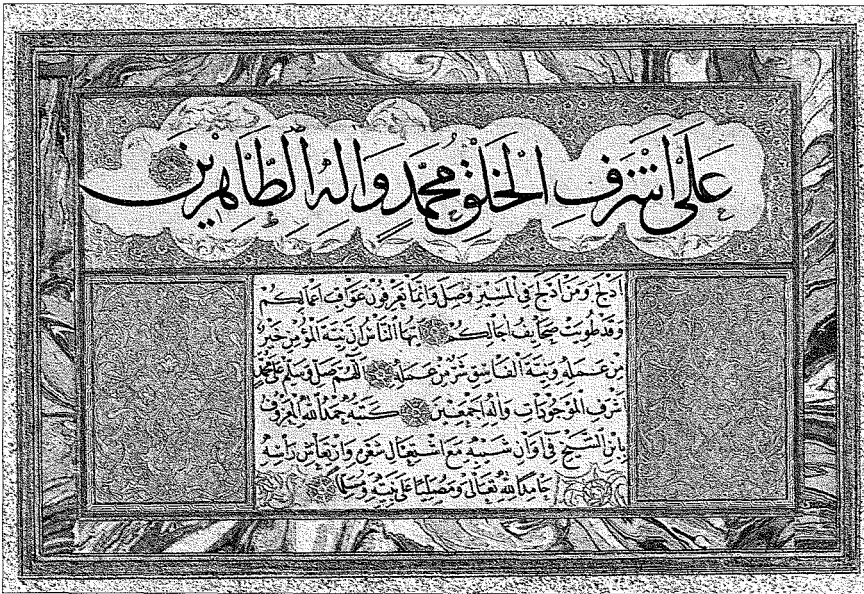 عَلَىٰ اَشْرَفِ الْخَلْقِ مُحَمَّدٍ وَاٰلِهِ الطَّاهِرِينَ
ادلج ومن ادلج في المسير وصل وانما يعرفون عواقب اعمالكم
وقد طويت صحايف اجالكم ايها الناس ان نية المؤمن خير
من عمله ونية الفاسق شر من عمله اللهم صل وسلم على محمد
اشرف الموجودات واله اجمعين كتبه حمد الله المعروف
بابن الشيخ في اوان شيبه مع اشتعال شعره وارتعاش راسه
حامدا لله تعالى ومصليا على نبيه ومسلما